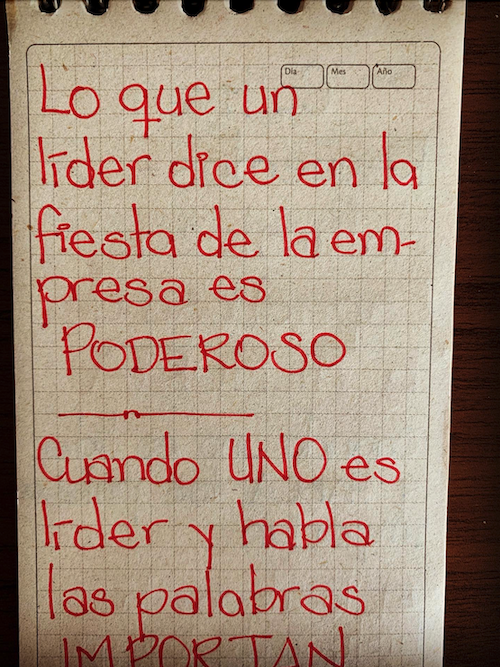 Día Mes Año
Lo que un
líder dice en la
fiesta de la em-
presa es
PODEROSO
Cuando UNO es
líder y habla
las palabras
IMPORTAN